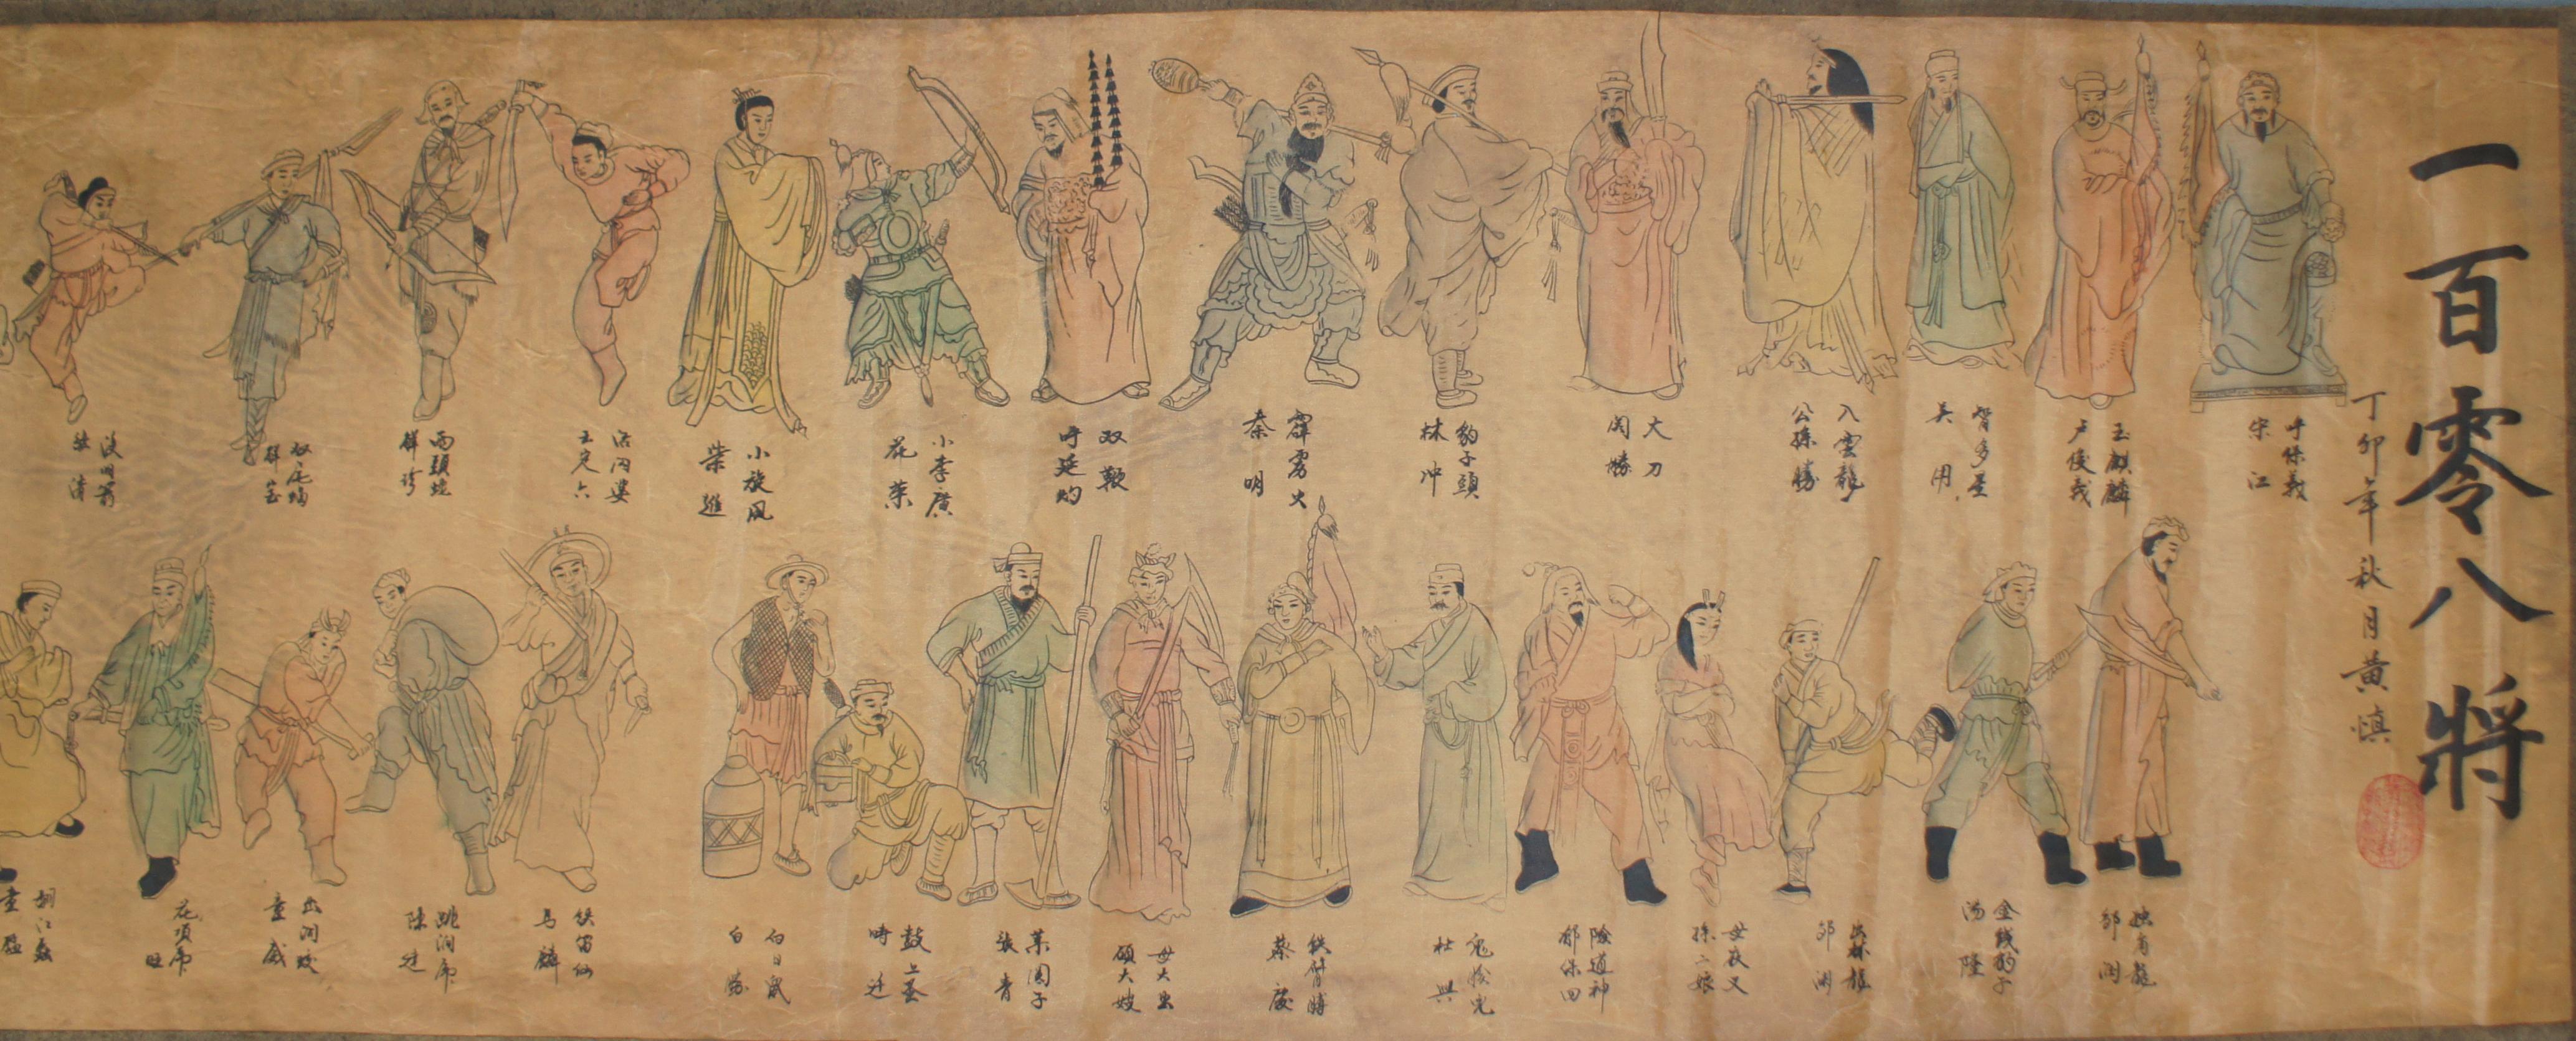 一百零八將
丁卯年秋月黄慎
呼保義
宋江
玉麒麟
卢俊義
智多星
吴用
入雲龍
公孫勝
大刀
関勝
豹子頭
林冲
霹雳火
秦明
双鞭
呼延灼
小李廣
花荣
小旋风
柴進
王定六
两頭蛇
浪
独角龍
邹润
金钱豹子
汤隆
出林龍
邹渊
母夜叉
孫二娘
險道神
郁保四
鬼脸兒
杜興
铁臂膊
蔡慶
母大虫
顾大嫂
菜園子
張青
鼓上蚤
時迁
白日鼠
白勝
铁笛仙
马麟
跳涧虎
陳达
出洞蛟
童威
花项虎
旺
翻江蜃
童猛